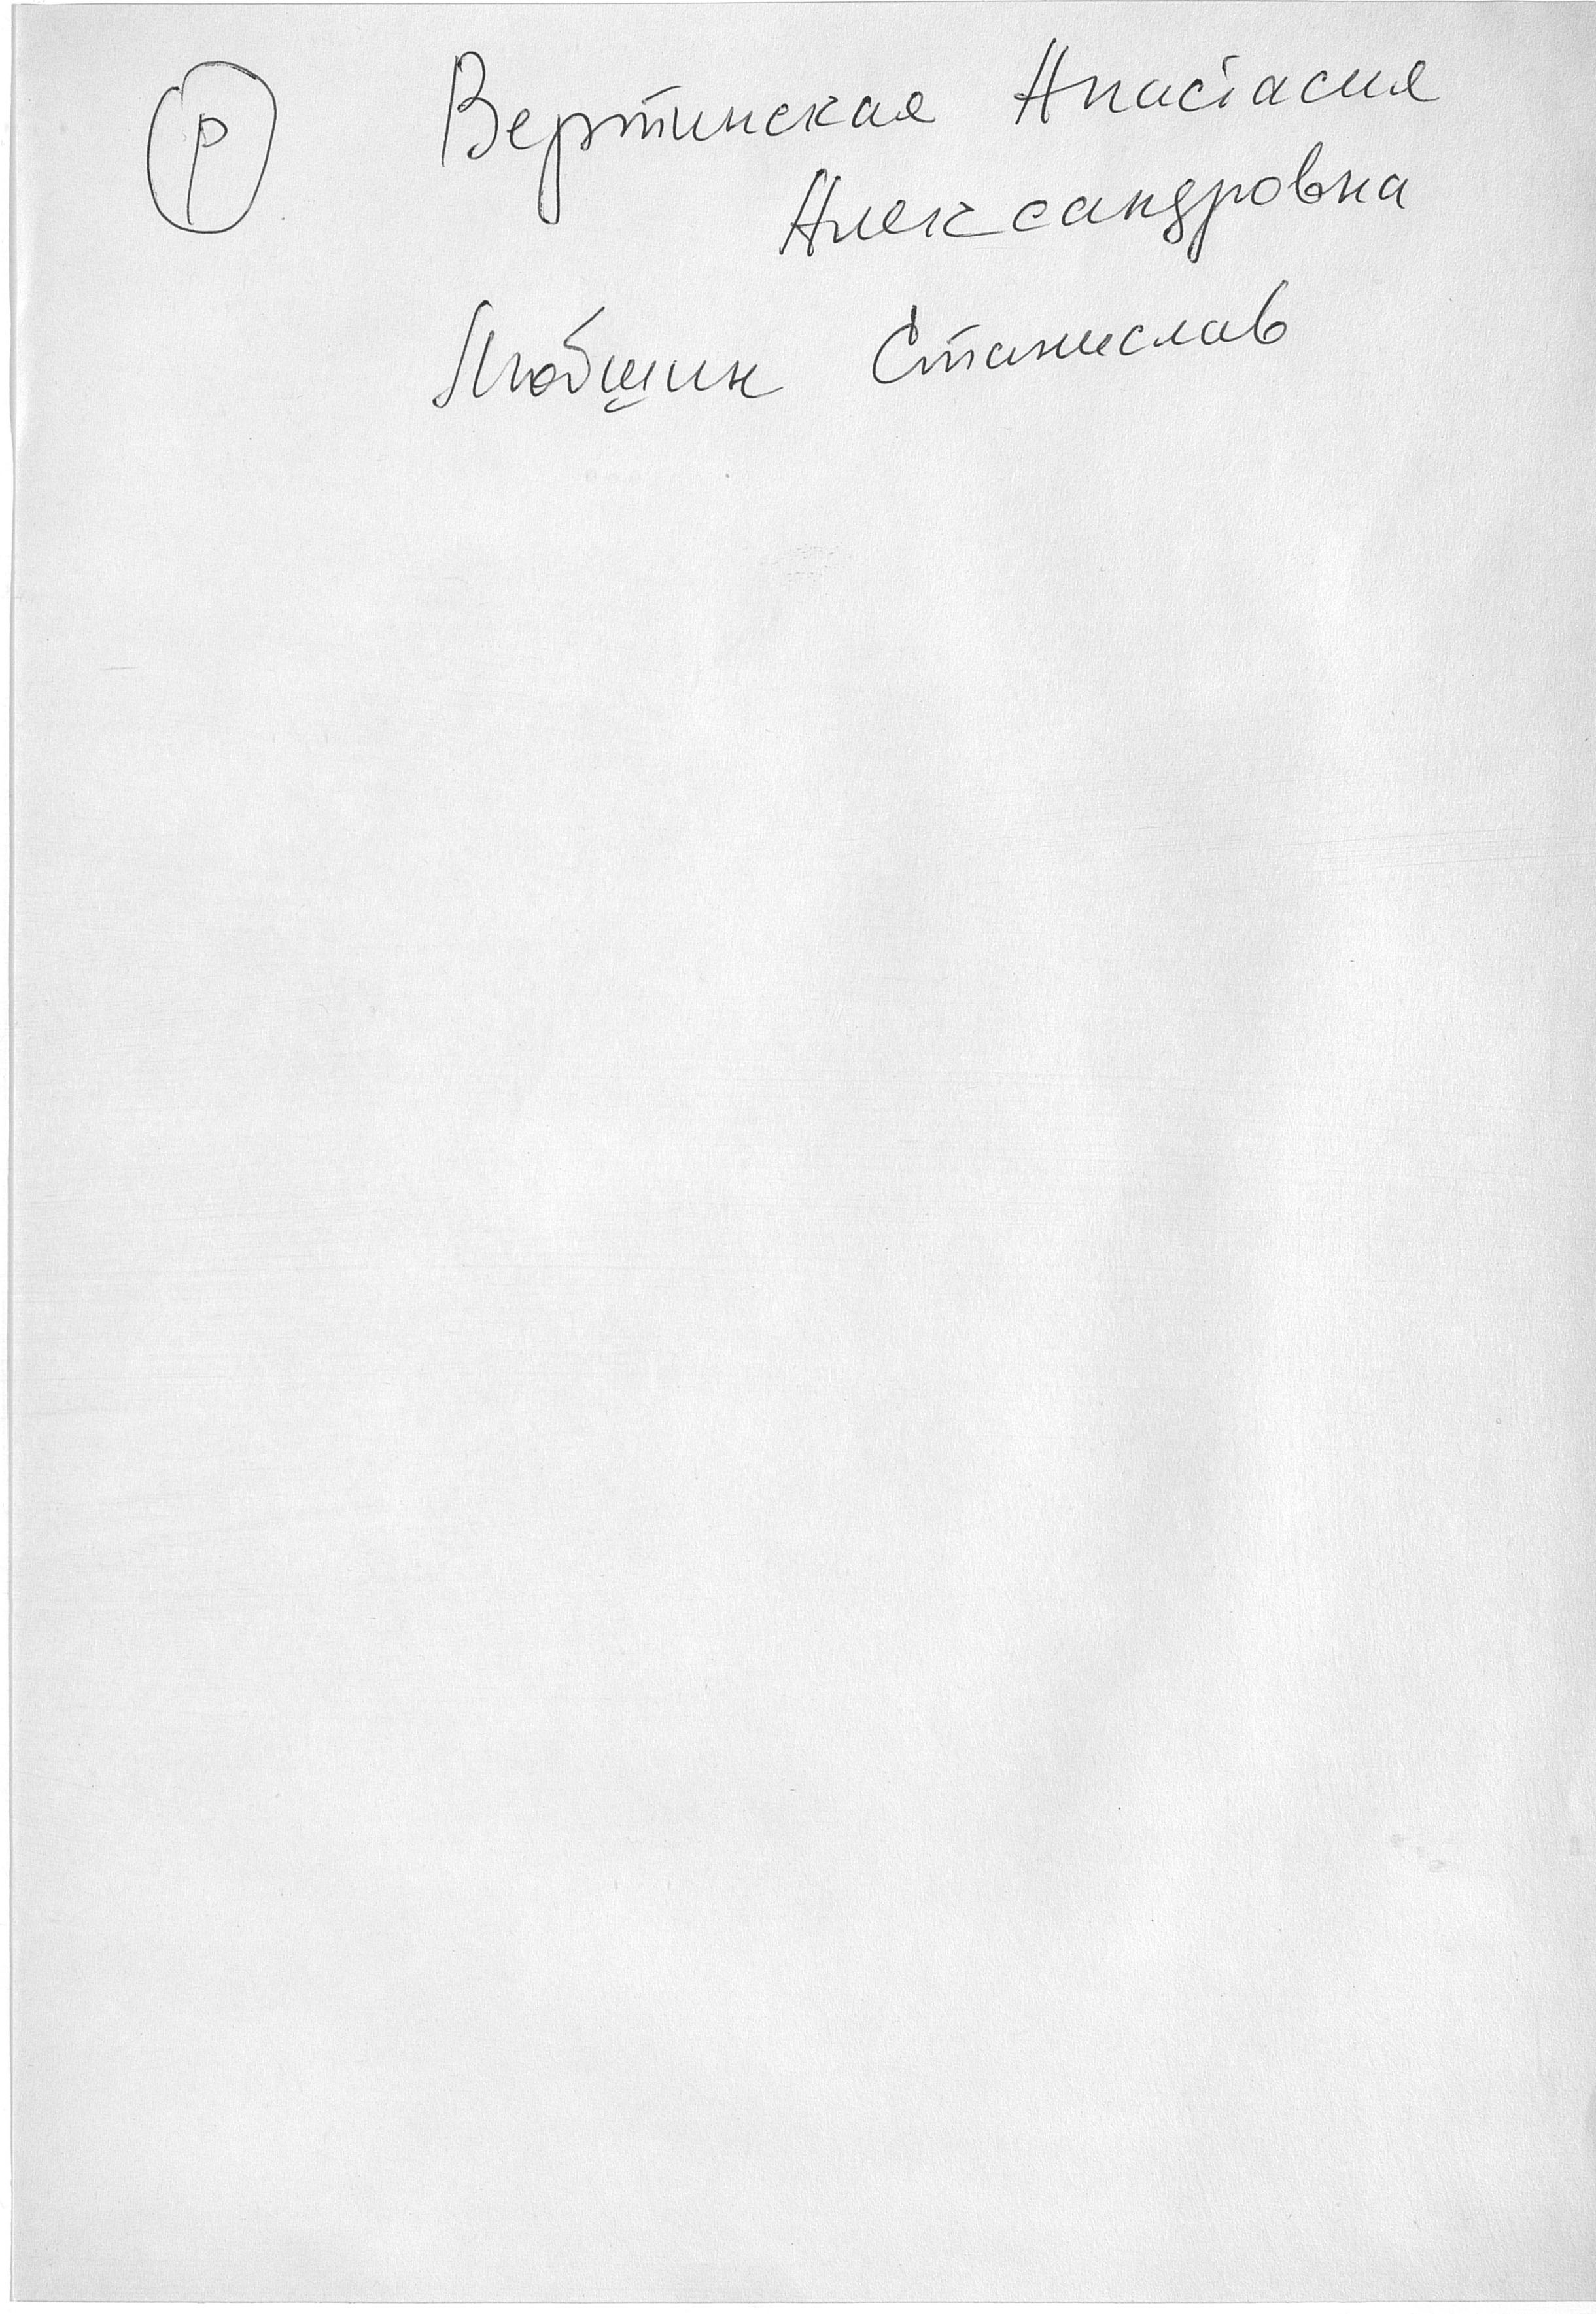 Р
Вертинская Анастасия
Александровна
Любшин Станислав